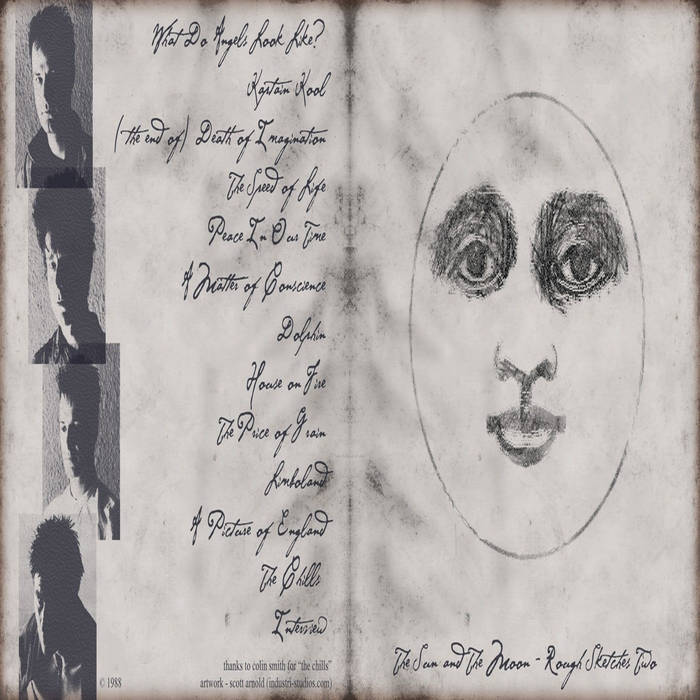 What Do Angels Look Like?
Kaptain Kool
(the end of) Death of Imagination
The Speed of Life
Peace In Our Time
A Matter of Conscience
Dolphin
House on Fire
The Price of Grain
Limboland
A Picture of England
The Chills
Interview
thanks to colin smith for "the chills"
© 1988
artwork - scott arnold (industri-studios.com)
The Sun and The Moon - Rough Sketches Two